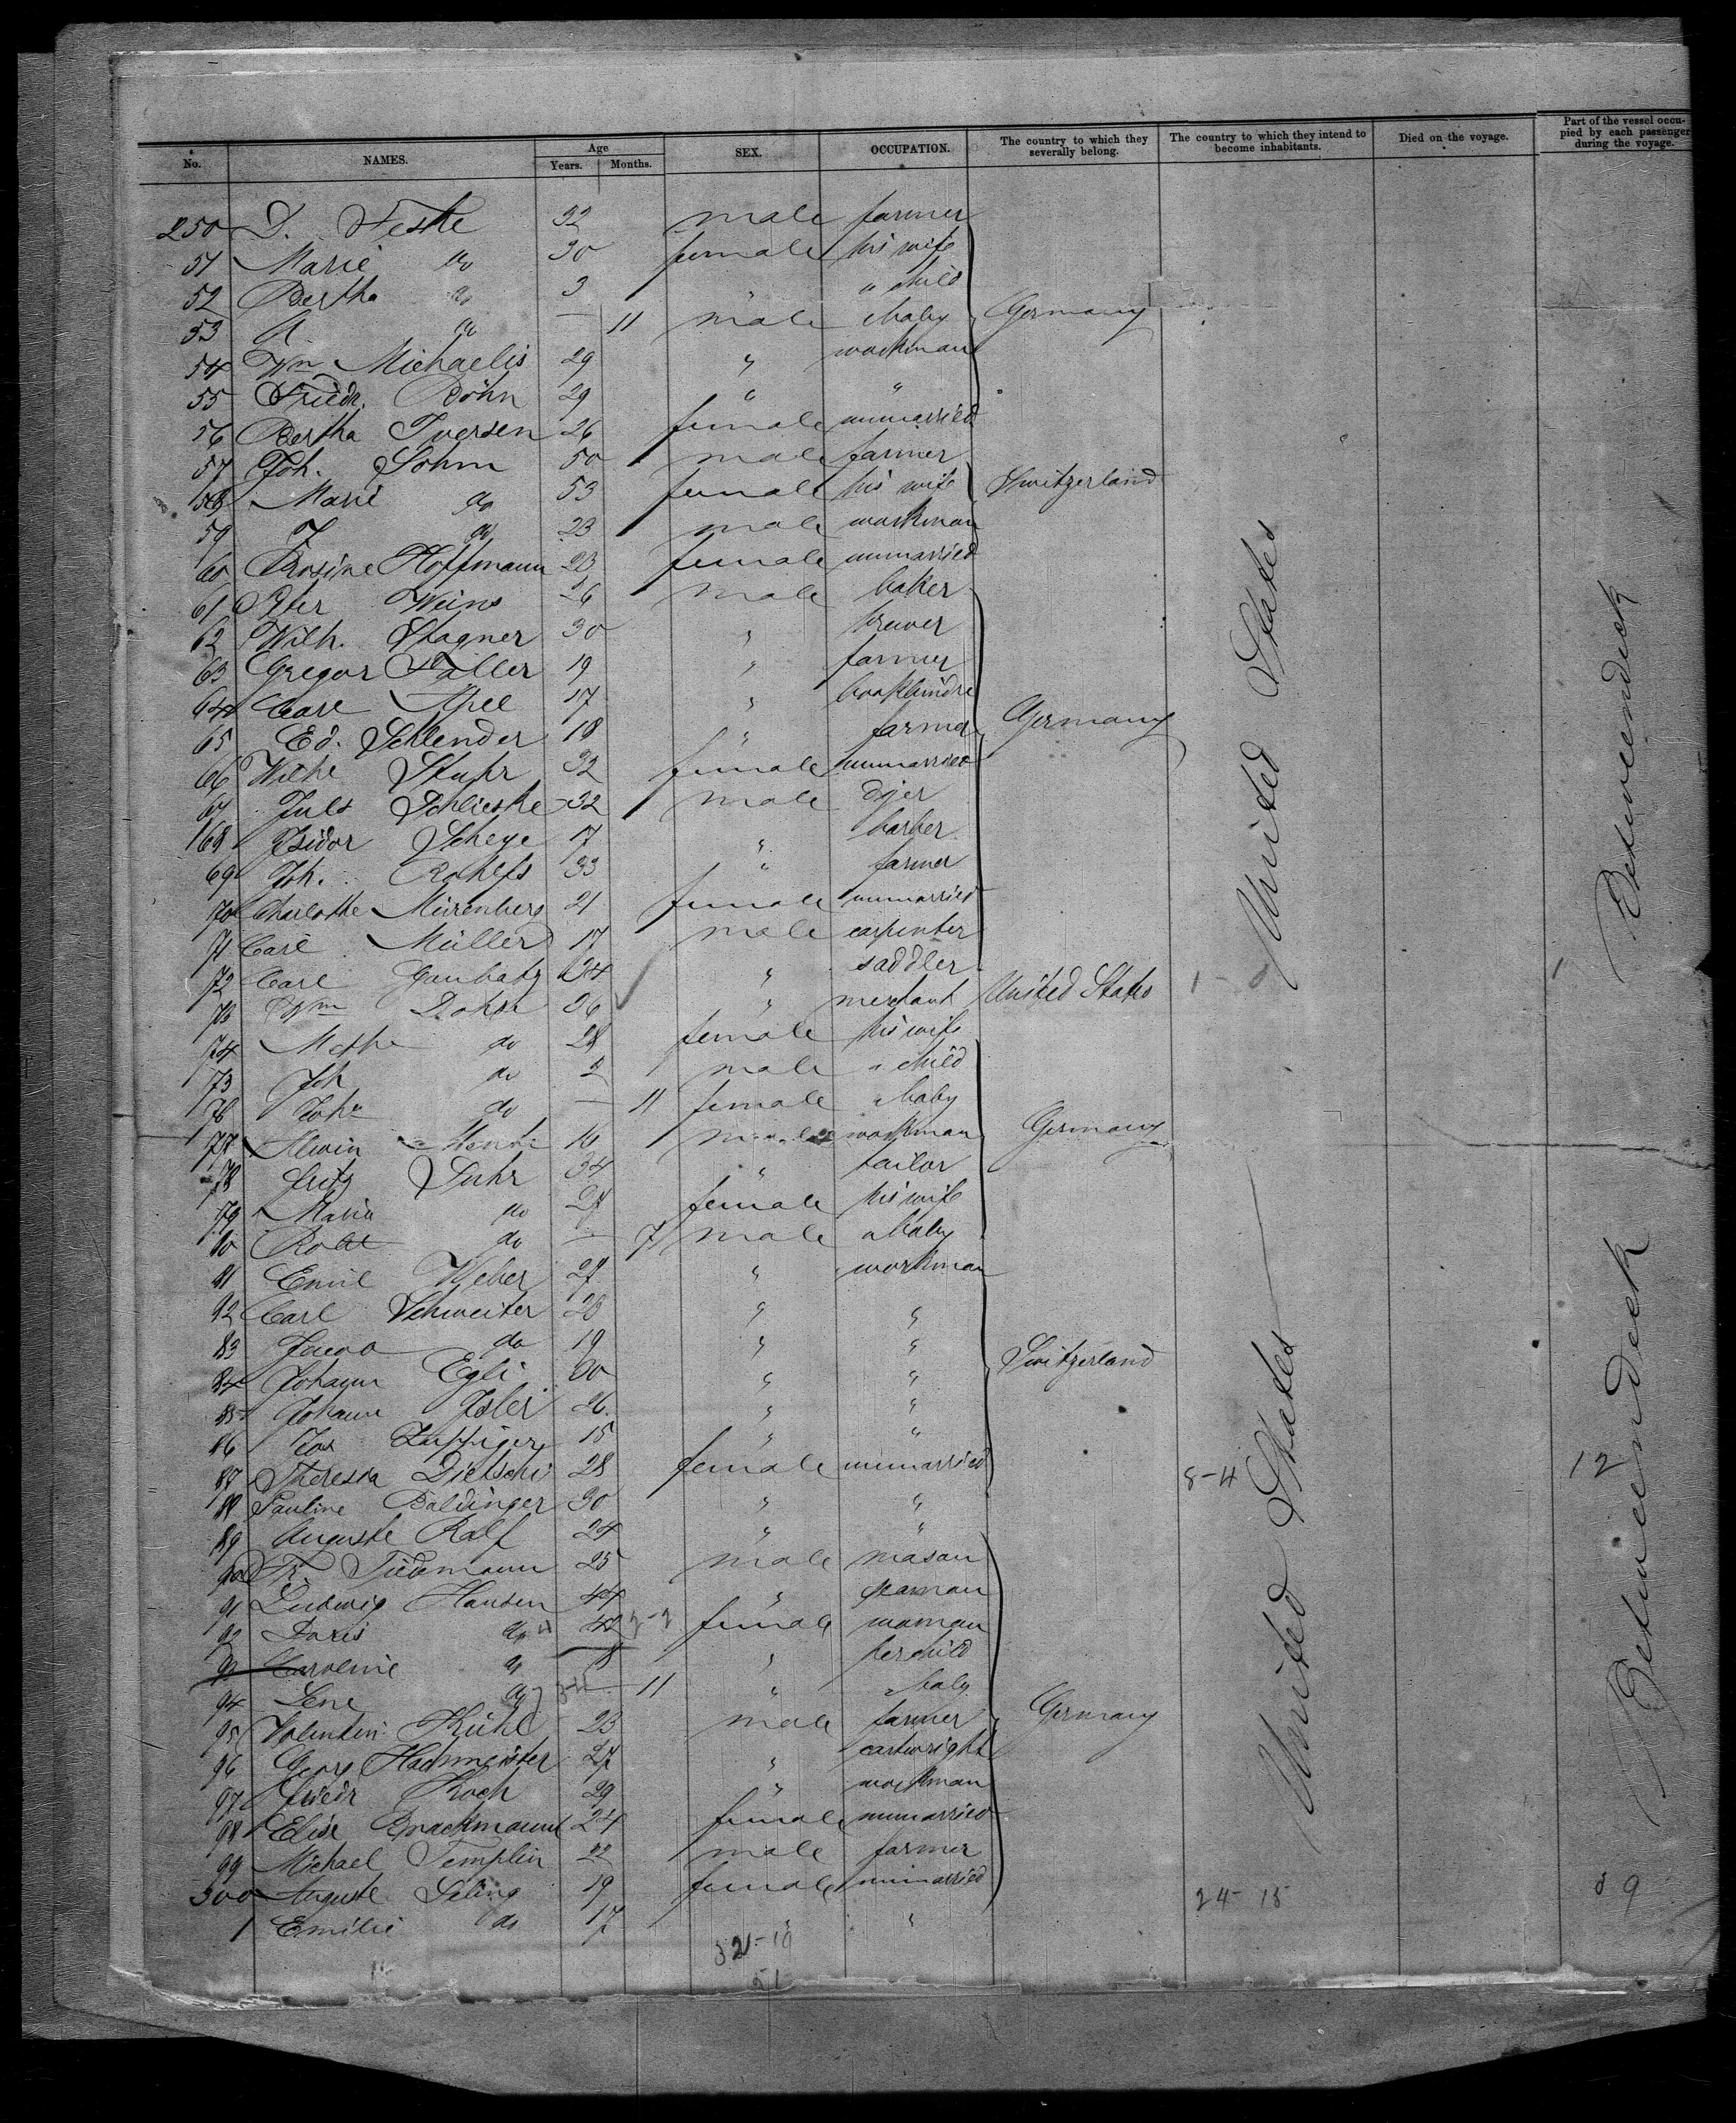 No. NAMES. Age Years. Months. SEX. OCCUPATION. The country to which they severally belong. The country to which they intend to become inhabitants. Died on the voyage. Part of the vessel occupied by each passenger during the voyage.
250 D. Feske 32 male farmer
51 Marie do 30 female his wife
52 Bertha do 3 " " child
53 A. do — 11 male " baby Germany
54 Wm Michaelis 29 " workman
55 Friedr. Böhn 29 " "
56 Bertha Iversen 26 female unmarried
57 Joh. Sohm 50 male farmer
58 Marie do 53 female his wife Switzerland
59 J. do 23 male workman
60 Rosine Hoffmann 23 female unmarried
61 Peter Weins 26 male baker
62 Wilh. Stagner 30 " brewer
63 Gregor Faller 19 " farmer
64 Carl Apel 17 " bookbindre
65 Ed. Schlender 18 " farmer Germany
66 Wilhe Stuhr 32 female unmarried
67 Juls Schlieske 32 male dyer
168 Isidor Scheye 17 " barber
69 Joh. Rohlfs 33 " farmer
70 Charlotte Mürenberg 21 female unmarried
71 Carl Müller 17 male carpenter
72 Carl Gaubatz 24 " saddler
73 Wm Dohse 26 " merchant United States 1 - 0 1
74 Methe do 28 female his wife
75 Joh do 2 male " child
76 Joha do — 11 female " baby
77 Alwin 16 male workman Germany
78 Fritz Suhr 34 " tailor
79 Maria do 27 female his wife
80 Robt do — 7 male " baby
81 Emil Weber 27 " workman
82 Carl Schweiter 20 " "
83 do 19 " "
84 Johann Egli 20 " " Switzerland
85 Johann Isler 26 " "
86 Jos Luppiger 15 " "
87 Theresia Dietschi 28 female unmarried 8-4 12
88 Pauline Baldinger 30 " "
89 Auguste Ralf 24 " "
90 Fr. Tiedemann 25 male mason
91 Ludwig Hansen 44 " seaman
92 Doris do 42 female woman
93 Caroline do 8 " her child
94 Lene do — 11 " " baby
95 Valentin Kühl 23 male farmer Germany
96 Georg Hachmeister 27 " cartwright
97 Friedr Koch 29 " workman
98 Elise Brackmann 24 female unmarried
99 Michael Templin 22 male farmer
300 Auguste Seling 19 female unmarried 24-15 39
1 Emilie do 17 " "
32-19
51
United States
United States
Betweendeck
Betweendeck